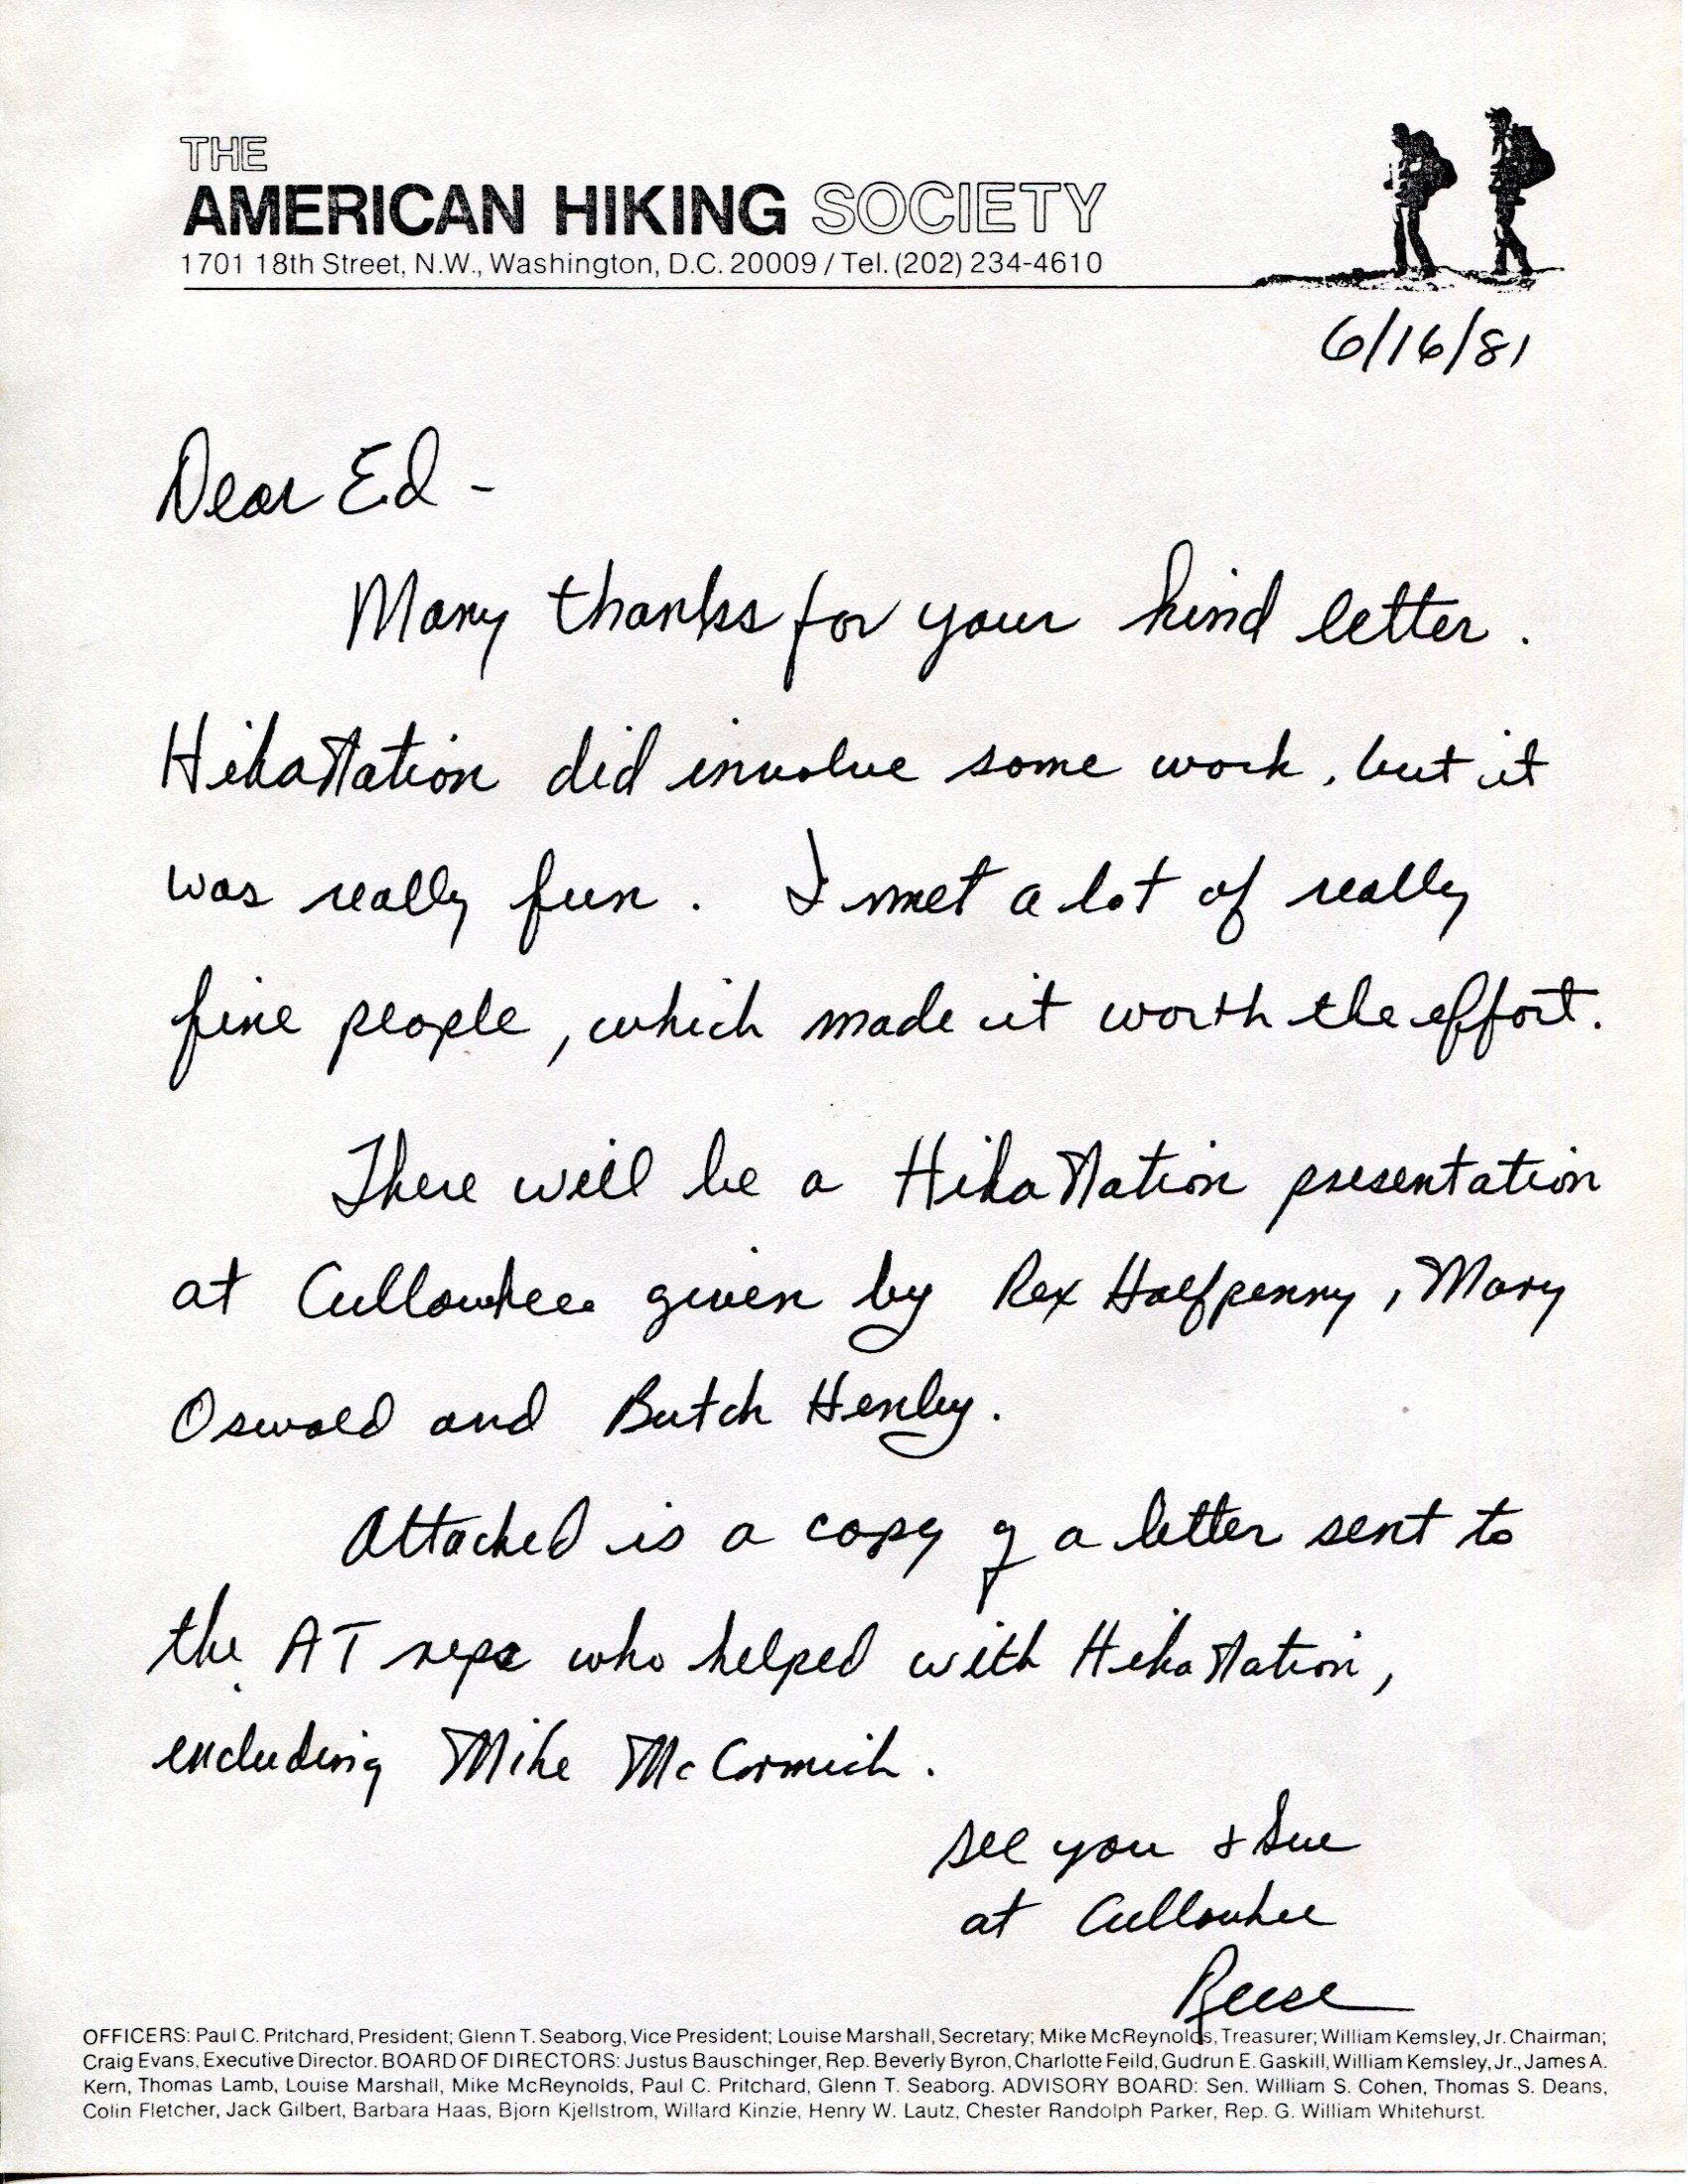 THE
AMERICAN HIKING SOCIETY
1701 18th Street, N.W., Washington, D.C. 20009 / Tel. (202) 234-4610
6/16/81
Dear Ed -
Many thanks for your kind letter.
HikaNation did involve some work, but it
was really fun. I met a lot of really
fine people, which made it worth the effort.
There will be a HikaNation presentation
at Cullowhee given by Rex Halfpenny, Mary
Oswald and Butch Henley.
Attached is a copy of a letter sent to
the AT reps who helped with HikaNation,
including Mike McCormick.
See you & Sue
at Cullowhee
Reese
OFFICERS: Paul C. Pritchard, President; Glenn T. Seaborg, Vice President; Louise Marshall, Secretary; Mike McReynolds, Treasurer; William Kemsley, Jr. Chairman;
Craig Evans, Executive Director. BOARD OF DIRECTORS: Justus Bauschinger, Rep. Beverly Byron, Charlotte Feild, Gudrun E. Gaskill, William Kemsley, Jr., James A.
Kern, Thomas Lamb, Louise Marshall, Mike McReynolds, Paul C. Pritchard, Glenn T. Seaborg. ADVISORY BOARD: Sen. William S. Cohen, Thomas S. Deans,
Colin Fletcher, Jack Gilbert, Barbara Haas, Bjorn Kjellstrom, Willard Kinzie, Henry W. Lautz, Chester Randolph Parker, Rep. G. William Whitehurst.